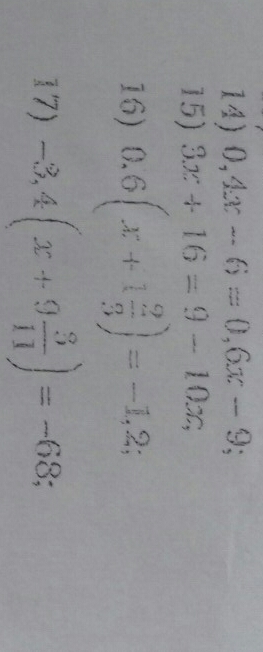 14) 0,4x − 6 = 0,6x − 9;
15) 3x + 16 = 9 − 10x;
16) 0,6(x + 1 2/3) = −1,2;
17) −3,4(x + 9 3/11) = −68;